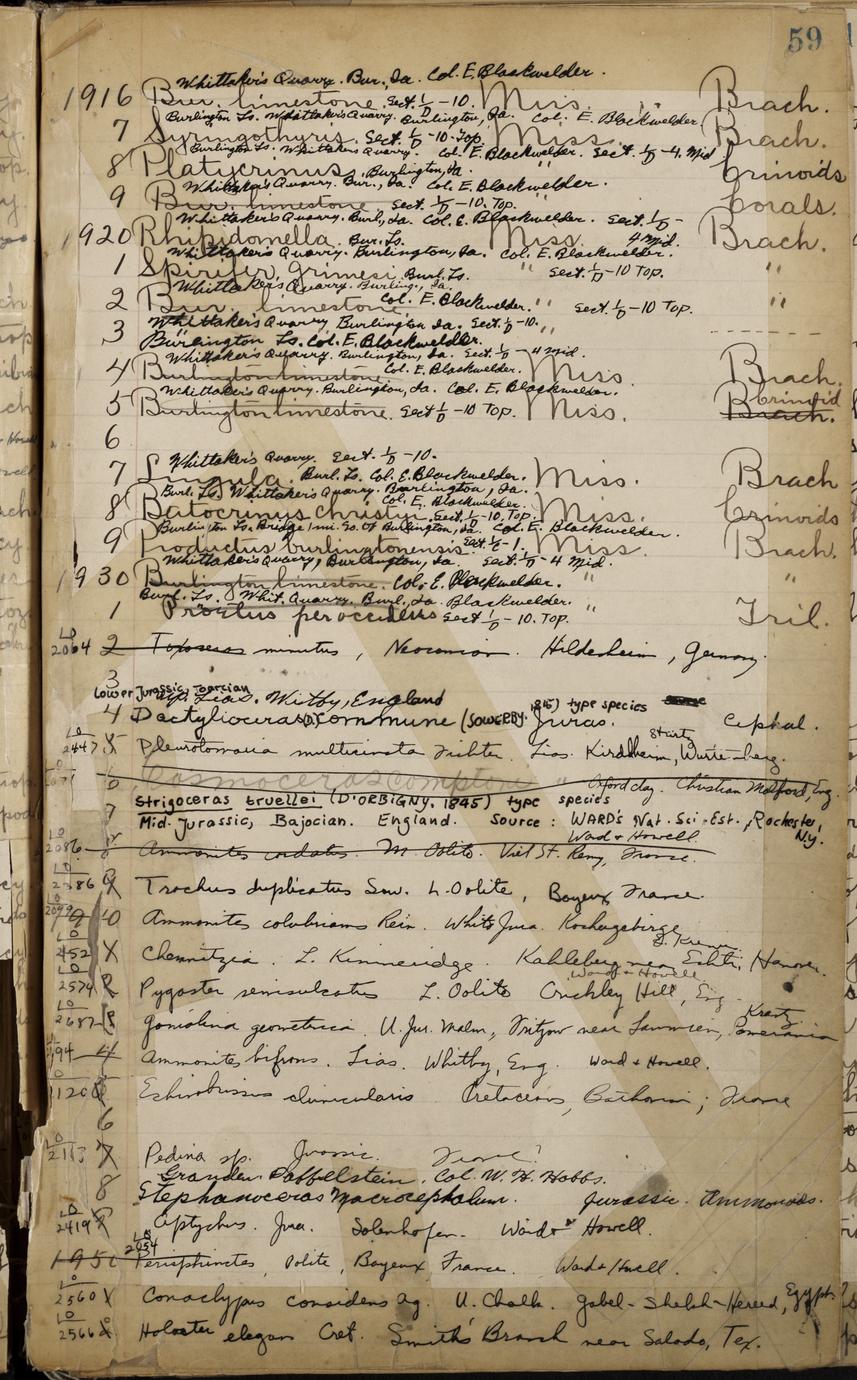 59
Whittaker's Quarry. Bur., Ia. Col. E. Blackwelder.
1916 Bur. limestone. Sect. 1/D -10. Miss. Brach.
Burlington Ls. Whittaker's Quarry. Burlington, Ia. Col. E. Blackwelder
7 Syringothyris. Sect. 1/D -10. Top Miss. Brach.
Burlington Ls. Whittaker's Quarry. Col. E. Blackwelder. Sect. 1/D -4. Mid
8 Platycrinus. Burlington, Ia. " Crinoids
Whittaker's Quarry. Bur., Ia. Col. E. Blackwelder
9 Bur. limestone Sect. 1/D -10. Top. Corals.
Whittaker's Quarry. Burl., Ia. Col. E. Blackwelder. Sect. 1/D -
1920 Rhipidomella. Bur. Ls. Miss. 4 Mid. Brach.
Whittaker's Quarry. Burlington, Ia. Col. E. Blackwelder.
1 Spirifer grimesi Burl. Ls. " Sect. 1/D -10 Top. "
Whittaker's Quarry. Burling., Ia.
2 Bur. limestone Col. E. Blackwelder. " Sect. 1/D -10 Top. "
Whittaker's Quarry Burlington Ia. Sect. 1/D -10.
3 Burlington Ls. Col. E. Blackwelder. "
Whittaker's Quarry. Burlington, Ia. Sect. 1/D 4 Mid.
4 Burlington limestone Col. E. Blackwelder. Miss. Brach.
Whittaker's Quarry. Burlington, Ia. Col. E. Blackwelder. Crinoid
5 Burlington limestone. Sect. 1/D -10 Top. Miss. Brach.
6
Whittaker's Quarry. Sect. 1/D -10.
7 Lingula. Burl. Ls. Col. E. Blackwelder. Miss. Brach
Burl. Ls. Whittaker's Quarry. Burlington, Ia.
Col. E. Blackwelder.
8 Batocrinus christyi. Sect. 1/D -10. Top. Miss. Crinoids
Burlington Ls. Bridge 1 mi. So. of Burlington, Ia. Col. E. Blackwelder.
9 Productus burlingtonensis Sect. 1/E -1. Miss. Brach.
Whittaker's Quarry, Burlington, Ia. Sect. 1/D -4 Mid.
1930 Burlington limestone. Col. E. Blackwelder. "
Burl. Ls. Whit. Quarry. Burl., Ia. Blackwelder.
1 Proetus peroccidens Sect 1/D -10. Top. " Tril.
LO 2064 2 Toxoceras minutus, Neocomian. Hildesheim, Germany.
3
Lower Jurassic, Toarcian
Up. Lias. Witby, England
4 Dactylioceras commune (SOWERBY. 1815) type species Juras. Cephal.
LO 2447 Pleurotomaria multicincta Lias. Kirchheim, Wurtemberg.
6 Cosmoceras comptoni " Oxford clay. Christian Malford, Eng.
7 Strigoceras truellei (D'ORBIGNY, 1845) type species
Mid. Jurassic, Bajocian. England. Source: WARD's Nat. Sci. Est., Rochester, N.Y.
Ward & Howell
LO 2086 8 Ammonites cordatus. M. Oolite. St. Remy, France.
LO 2386 Trochus duplicatus Sow. L. Oolite, Bayeux France.
LO 1940 Ammonites colubrinus Rein. White Jura.
LO 2452 Chemnitzia. L. Kimmeridge. Kahleberg near Hanover.
Ward & Howell
LO 2574 Pygaster semisulcatus L. Oolite Crickley Hill, Eng
LO 2687 Goniolina geometrica. U. Jur. Malm, Fritzow near Cammin, Pomerania
4 Ammonites bifrons. Lias. Whitby, Eng. Ward & Howell.
LO 1120 Echinobrissus clunicularis Cretaceous, Bathonian; France
6
LO 2113 7 Pedina sp. Jurassic. France?
Col. W. H. Hobbs.
8 Stephanoceras Macrocephalum. Jurassic. Ammonoids.
LO 2419 Aptychus. Jura. Solenhofen. Ward & Howell.
LO 2054
1950 Perisphinctes, Oolite, Bayeux France. Ward & Howell
LO 2560 Conoclypus Ag. U. Chalk. Gebel- Egypt.
LO 2566 Holaster elegans Cret. Smith's Branch near Salado, Tex.